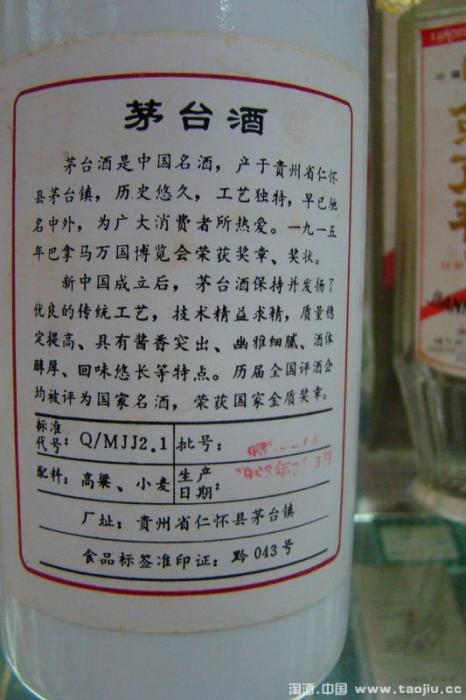 茅台酒
茅台酒是中国名酒，产于贵州省仁怀
县茅台镇，历史悠久，工艺独特，早已驰
名中外，为广大消费者所热爱。一九一五
年巴拿马万国博览会荣获奖章、奖状。
新中国成立后，茅台酒保持并发扬了
优良的传统工艺，技术精益求精，质量稳
定提高、具有酱香突出、幽雅细腻、酒体
醇厚、回味悠长等特点。历届全国评酒会
均被评为国家名酒，荣获国家金质奖章。
标准代号：Q/MJJ2.1 批号：
配料：高粱、小麦 生产日期：
厂址：贵州省仁怀县茅台镇
食品标签准印证：黔043号
淘酒.中国 www.taojiu.cc